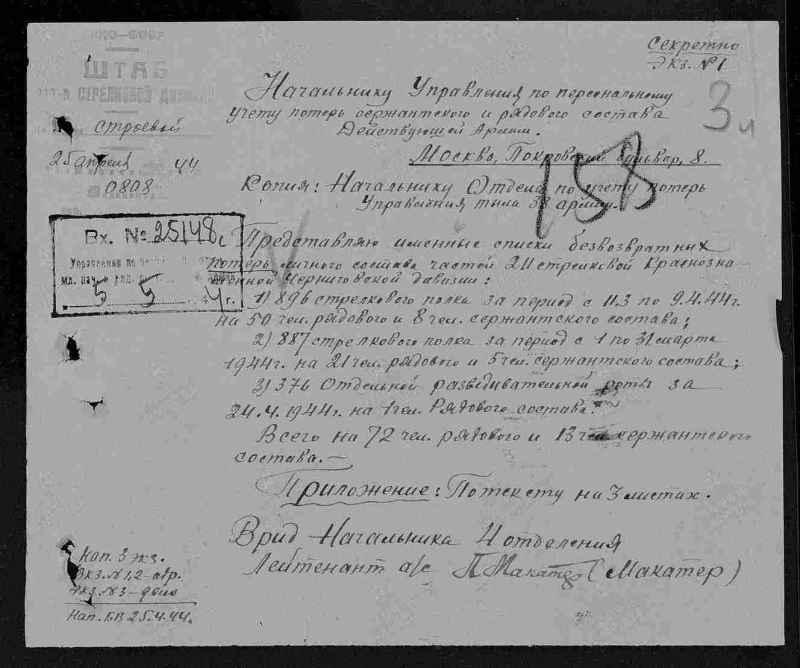 НКО-СССР
ШТАБ
СТРЕЛКОВОЙ
строевой
25 апреля 44
0808
Секретно
Экз. №1
3 л
Начальнику Управления по персональному
учету потерь сержантского и рядового состава
Действующей Армии.
Москва, Покровский бульвар, 8.
158
Копия: Начальнику Отдела по учету потерь
Управления тыла 38 армии.
Вх. № 25148с
5 5 44г.
Представляю именные списки безвозвратных
потерь личного состава частей 211 стрелковой Краснозна-
менной Черниговской дивизии:
1) 896 стрелкового полка за период с 11.3 по 9.4.44г.
на 50 чел. рядового и 8 чел. сержантского состава;
2) 887 стрелкового полка за период с 1 по 31 марта
1944г. на 21 чел. рядового и 5 чел. сержантского состава;
3) 376 Отдельной разведывательной роты за
24.4.1944г. на 1 чел. Рядового состава.
Всего на 72 чел. рядового и 13 чел. сержантского
состава. —
Приложение: По тексту на 3 листах.
Врид Начальника 4 отделения
Лейтенант а/с (Макатер)
Нап. 3 экз.
Экз. №1,2 - адр.
Экз. №3 - дело
Нап. БВ 25.4.44.